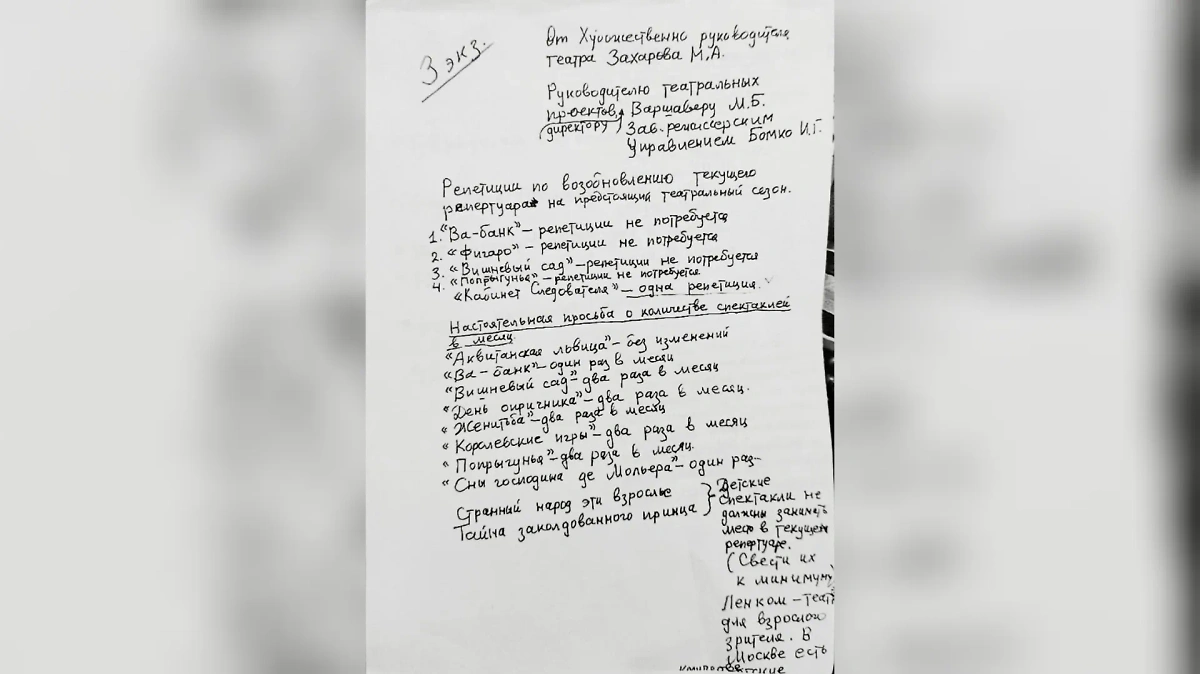 3 экз.
От Художественно руководителя
театра Захарова М.А.
Руководителю театральных
проектов, Варшаверу М.Б.
директору
Зав. режиссерским
Управлением Бомко И.Г.
Репетиции по возобновлению текущего
репертуара на предстоящий театральный сезон.
1. "Ва-банк" – репетиции не потребуется
2. "Фигаро" – репетиции не потребуется
3. "Вишневый сад" – репетиции не потребуется
4. "Попрыгунья" – репетиции не потребуется
"Кабинет Следователя" – одна репетиция.
Настоятельная просьба о количестве спектаклей
в месяц
"Аквитанская львица" – без изменений
"Ва-банк" – один раз в месяц
"Вишневый сад" – два раза в месяц
"День опричника" – два раза в месяц.
"Женитьба" – два раза в месяц
"Королевские игры" – два раза в месяц
"Попрыгунья" – два раза в месяц.
"Сны господина де Мольера" – один раз
Странный народ эти взрослые
Тайна заколдованного принца
Детские
спектакли не
должны занимать
место в текущем
репертуаре.
(Свести их
к минимуму
Ленком – театр
для взрослого
зрителя. В
Москве есть